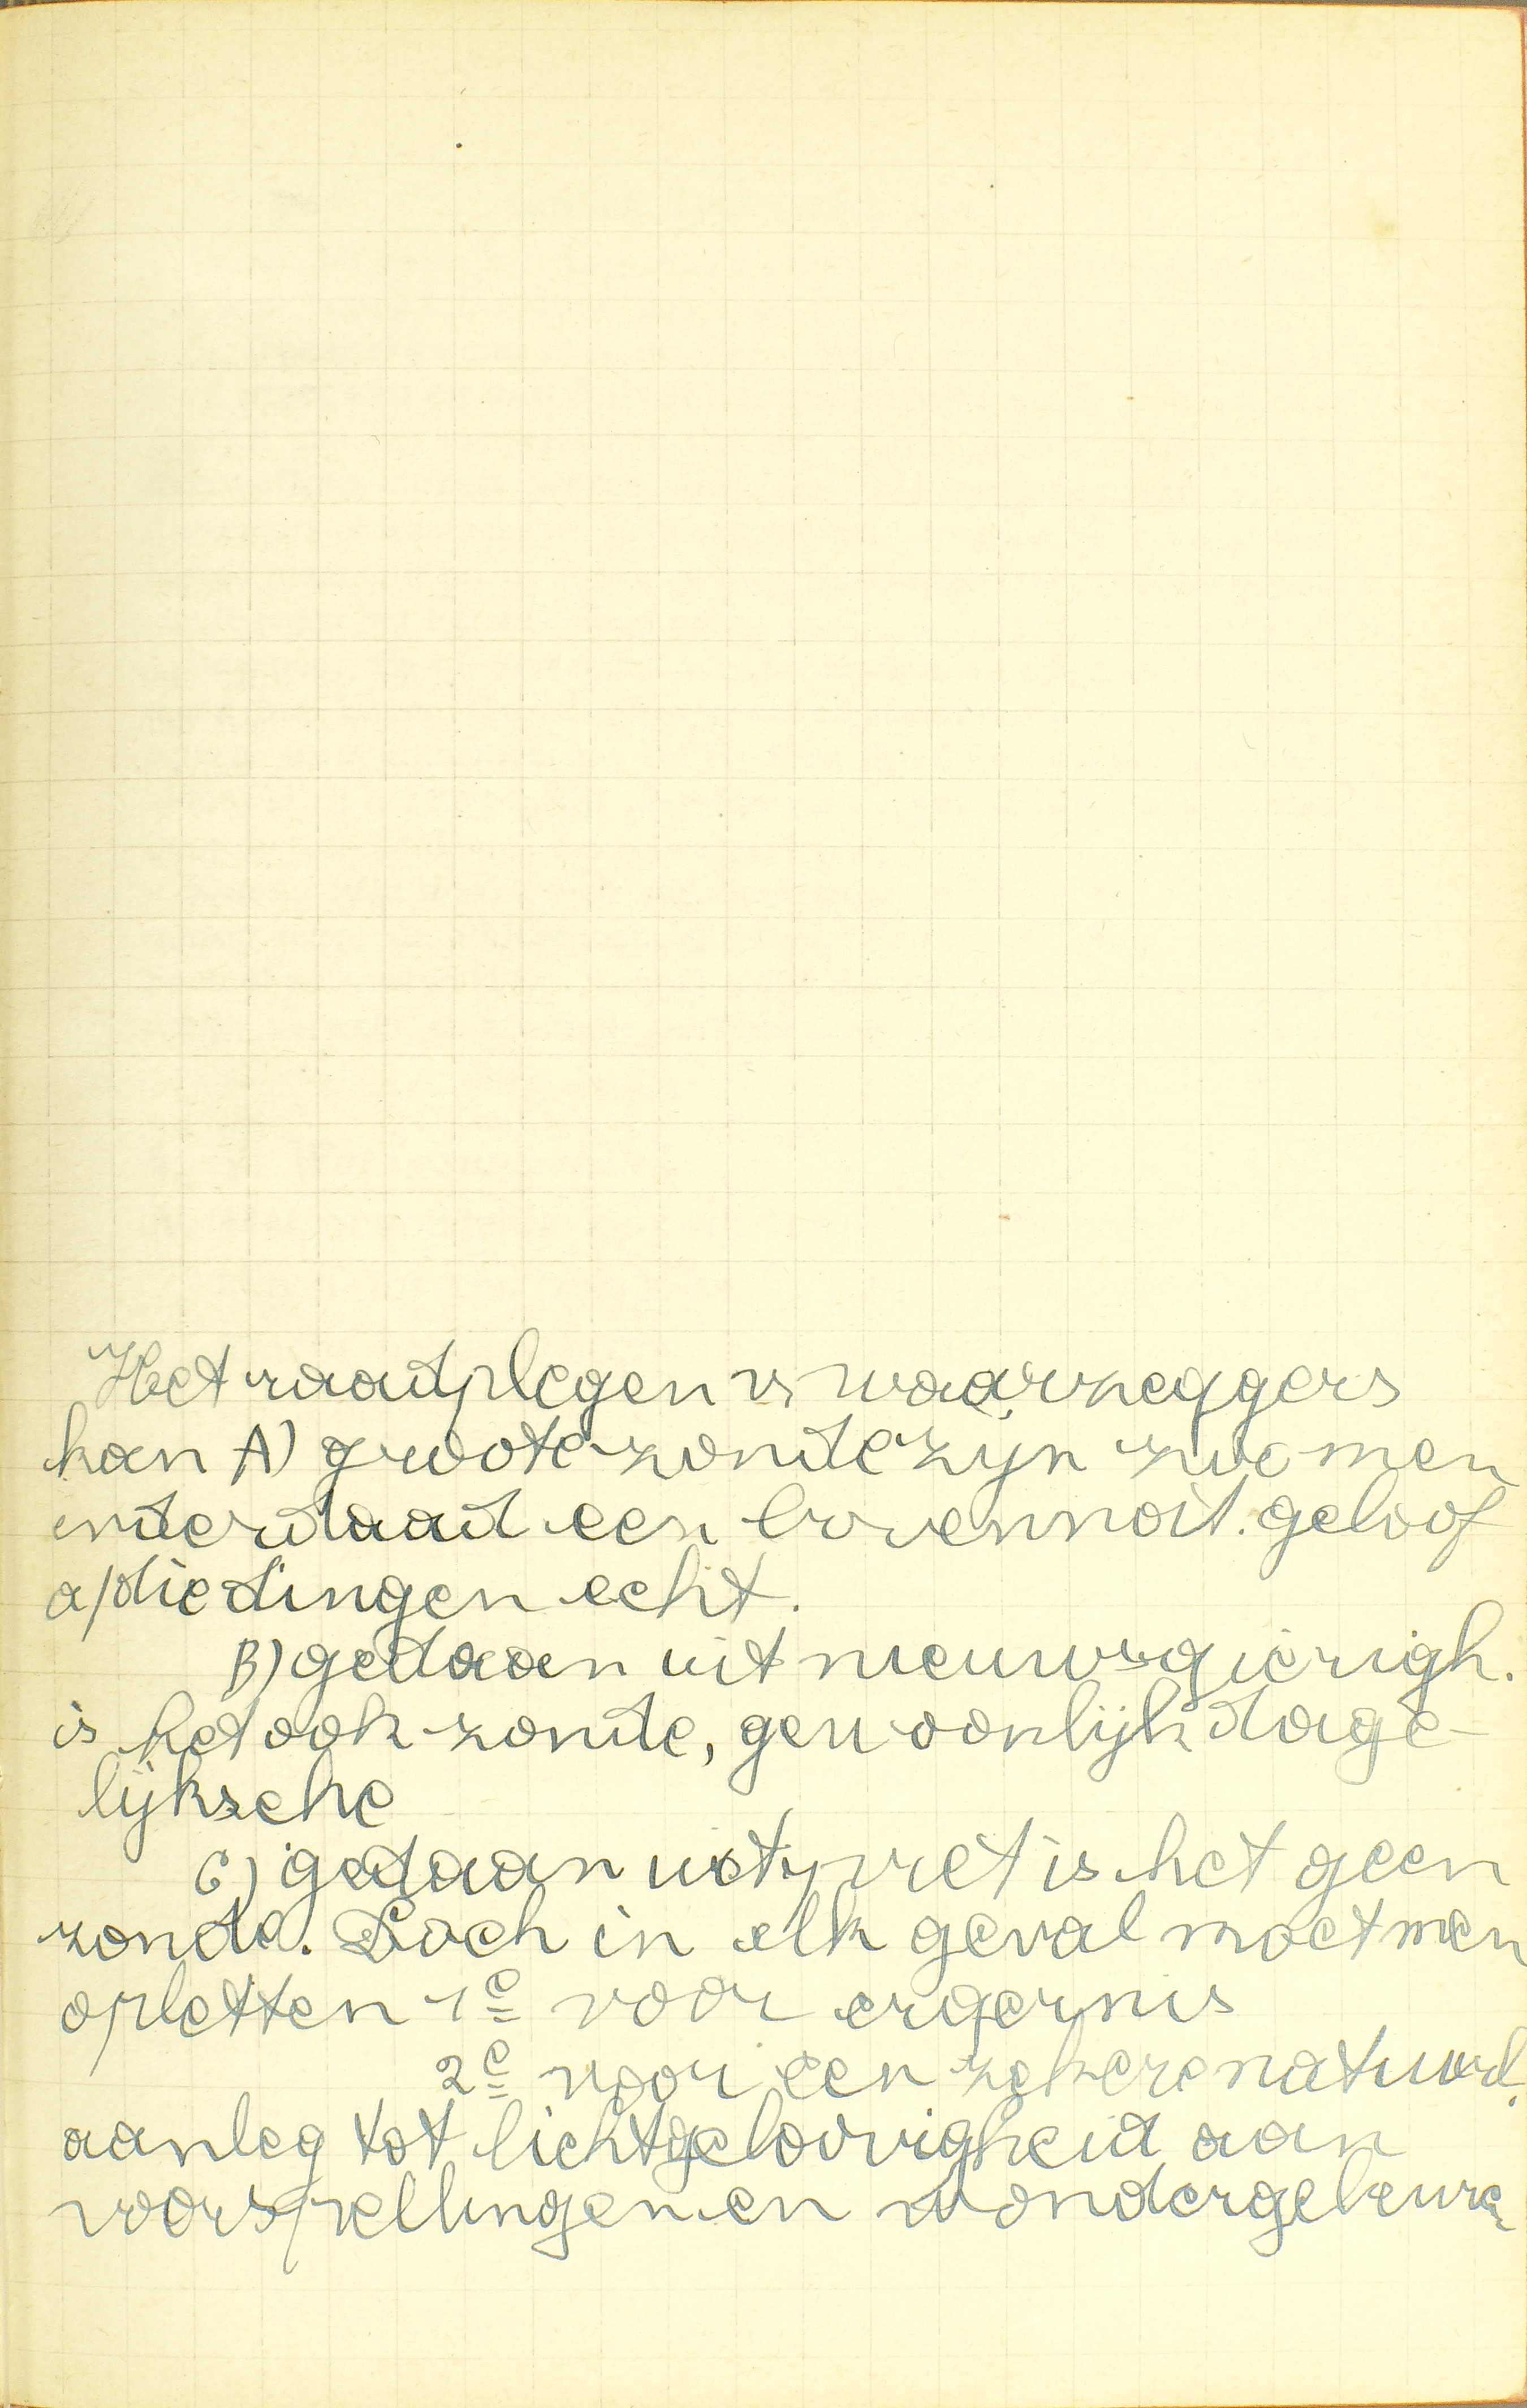 Het raadplegen v waarzeggers
kan A) groote zonde zijn zoo men
inderdaad een bovennat. geloof
a/die dingen echt.
B) gedaan uit nieuwsgierigh.
is het ook zonde, gewoonlijk dage-
lijksche
C) gedaan uit pret is het geen
zonde. Doch in elk geval moet men
opletten 1e voor ergernis
2e voor een zekere natuurl.
aanleg tot lichtgeloovigheid aan
voorspellingen en wondergebeure